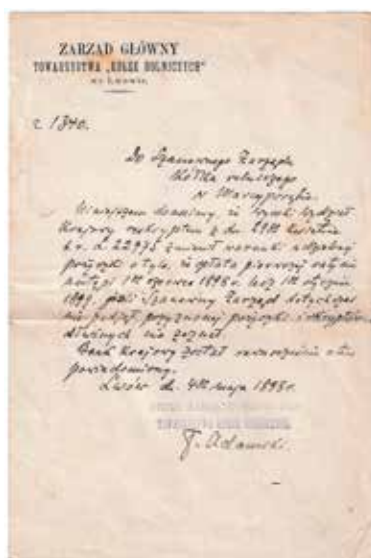 ZARZĄD GŁÓWNY
TOWARZYSTWA „KÓŁEK ROLNICZYCH"
we Lwowie.
L. 1340.
Do Szanownego Zarządu
Kółka rolniczego
w
Niniejszem donosimy, że Wysoki Wydział
Krajowy reskryptem z dn. kwietnia
b.r. zmienił warunki
pożyczki o tyle, że spłata pierwszej raty nie
1898 r. lecz 1 stycznia
1899, jeśli Szanowny Zarząd dotychczas
nie podjął przyznanej pożyczki i skryptów
dłużnych nie zeznał.
Bank Krajowy został równocześnie o tem
powiadomiony.
Lwów d. maja 1898 r.
T. Adamski.